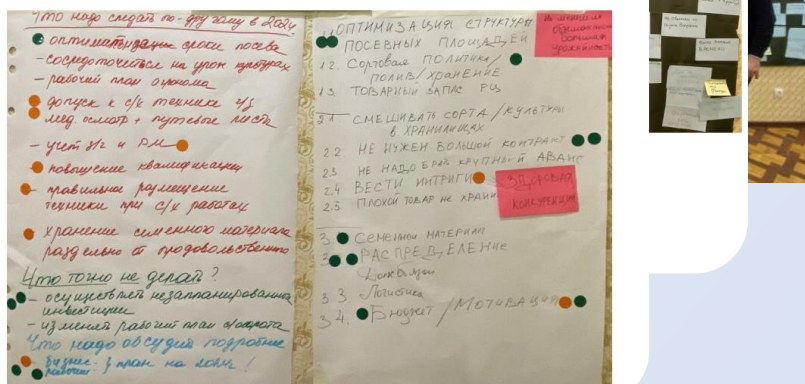 Что надо сделать по-другому в 2024
оптимизация сроки посева
- сосредоточиться на урож культурах
- рабочий план агронома
допуск к с/х технике ч/з
мед. осмотр + путевые листа
- учет з/ч и РМ
повошение квалификации
- правильное размещение
техники при с/х работах
хранение семенного материала
раздельно от продовольственного
Что точно не делать?
- осуществлять незапланированна
инвестиции
- изменять рабочий план с/оборота
Что надо обсудить подробнее
- бизнес-
рабочий- } план на
1. ОПТИМИЗАЦИЯ СТРУКТУРЫ
ПОСЕВНЫХ ПЛОЩАДЕЙ
1.2. Сортовая ПОЛИТИКА/
ПОЛИВ/ХРАНЕНИЕ
1.3. ТОВАРНЫЙ ЗАПАС РЦ
2.1. СМЕШИВАТЬ СОРТА/КУЛЬТУРЫ
В ХРАНИЛИЩАХ
2.2. НЕ НУЖЕН БОЛЬШОЙ КОНТРАКТ
2.3 НЕ НАДО БРАТЬ КРУПНЫЙ АВАНС
2.4 ВЕСТИ ИНТРИГИ
2.5 ПЛОХОЙ ТОВАР НЕ ХРАНИ
ЗДОРОВАЯ
КОНКУРЕНЦИЯ
3. СЕМЕННОЙ МАТЕРИАЛ
РАСПРЕДЕЛЕНИЕ
3.3. Логистика
3.4. Бюджет/МОТИВАЦИЯ